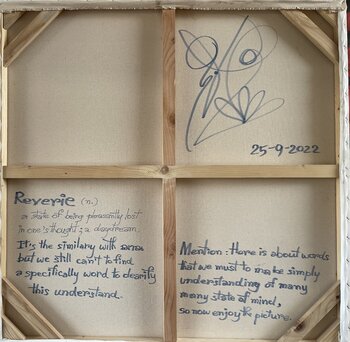 25-9-2022
Reverie (n.)
a state of being pleasantly lost
in one's thought; a daydream.
It's the similary with sense
but we still can't to find
a specifically word to clearify
this understand.
Mention: Here is about words
that we must to make simply
understanding of many
many state of mind,
so now enjoy the picture.